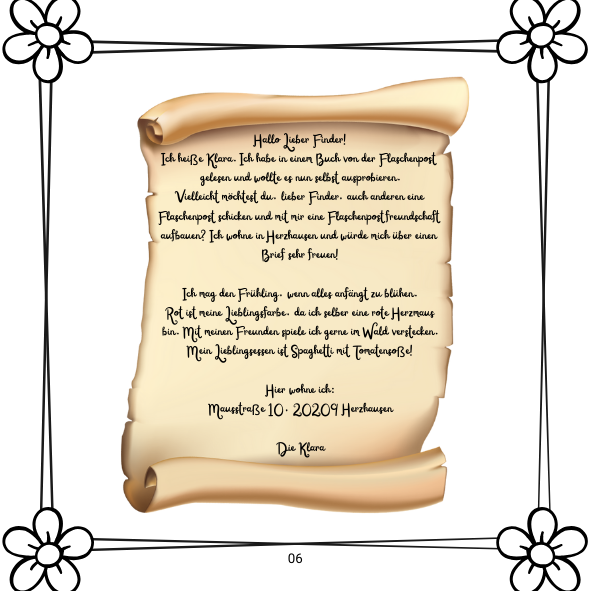 Hallo Lieber Finder!
Ich heiße Klara. Ich habe in einem Buch von der Flaschenpost
gelesen und wollte es nun selbst ausprobieren.
Vielleicht möchtest du, lieber Finder, auch anderen eine
Flaschenpost schicken und mit mir eine Flaschenpostfreundschaft
aufbauen? Ich wohne in Herzhausen und würde mich über einen
Brief sehr freuen!
Ich mag den Frühling, wenn alles anfängt zu blühen.
Rot ist meine Lieblingsfarbe, da ich selber eine rote Herzmaus
bin. Mit meinen Freunden spiele ich gerne im Wald verstecken.
Mein Lieblingsessen ist Spaghetti mit Tomatensoße!
Hier wohne ich:
Mausstraße 10, 20209 Herzhausen
Die Klara
06